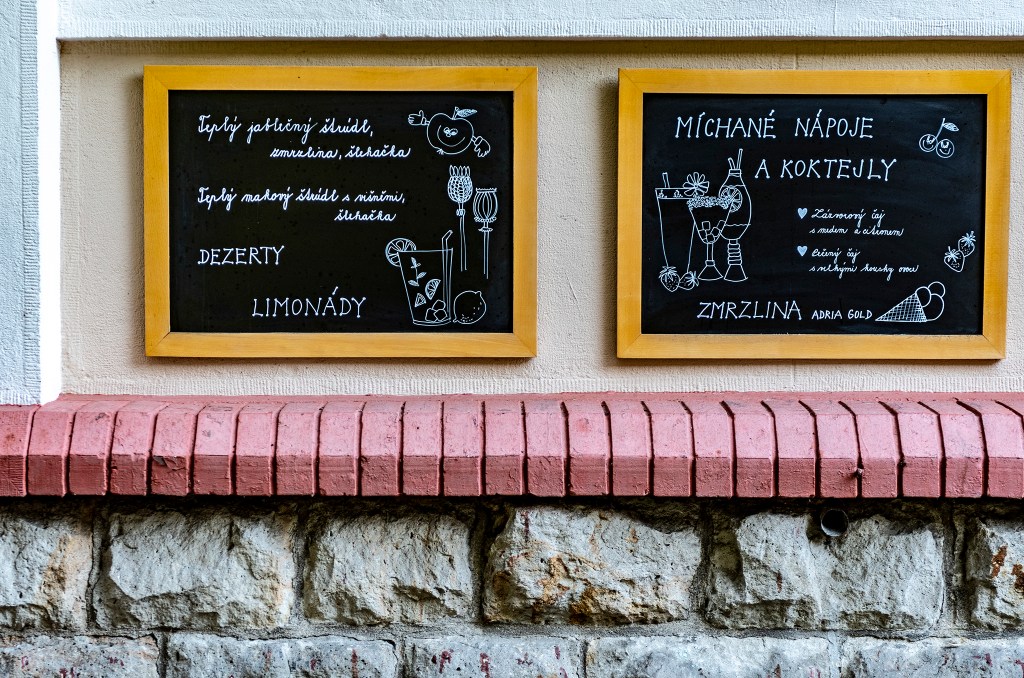 Teplý jablečný štrúdl,
zmrzlina, šlehačka
Teplý makový štrúdl s višněmi,
šlehačka
DEZERTY
LIMONÁDY
MÍCHANÉ NÁPOJE
A KOKTEJLY
Zázvorový čaj
s medem a citronem
Ovocný čaj
s velkými kousky ovoce
ZMRZLINA ADRIA GOLD